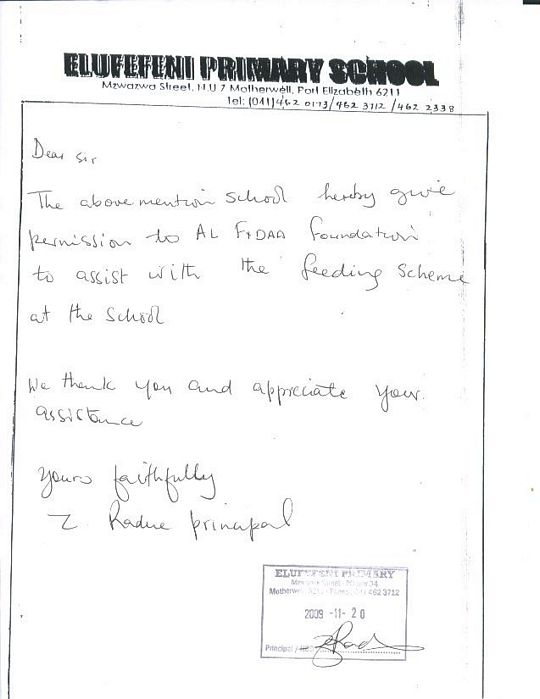 ELUFEFENI PRIMARY SCHOOL
Mzwazwa Street, N.U 7 Motherwell, Port Elizabeth 6211
Tel: (041) 462 0173/462 3712/462 2338
Dear Sir
The above mention school hereby give
permission to AL FIDAA Foundation
to assist with the feeding Scheme
at the School
We thank you and appreciate your
assistance
Yours faithfully
Z. Radue principal
ELUFEFENI PRIMARY
Motherwell 041 462 3712
2009 -11- 20
Principal /